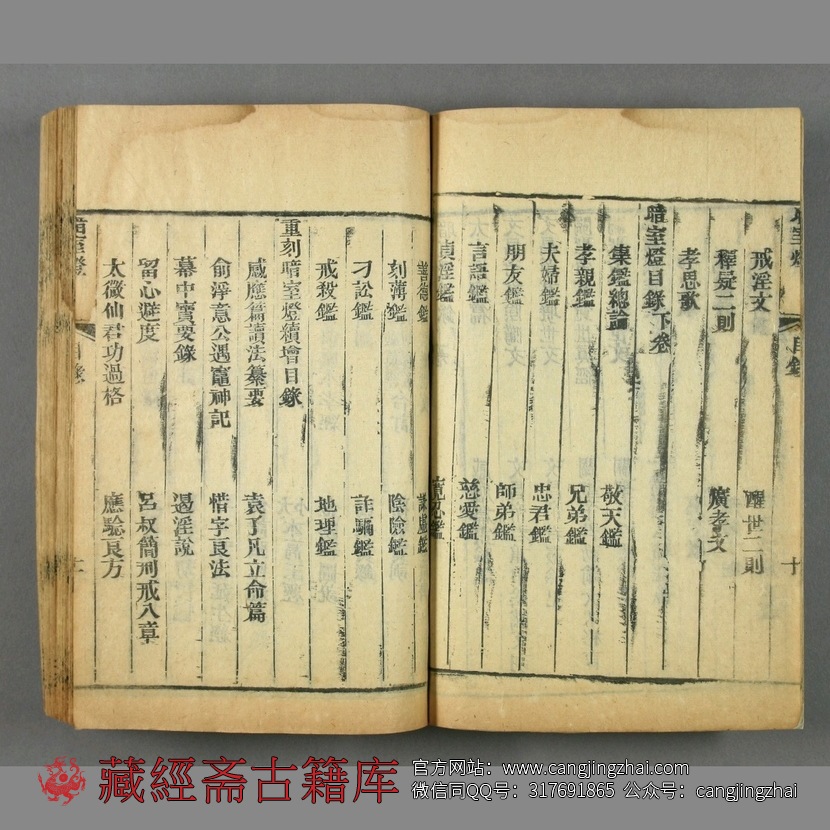 暗室燈
目錄
十
戒淫文 醒世二則
釋疑二則 廣孝文
孝思歌
暗室燈目錄下卷
集鑑總論 敬天鑑
孝親鑑 兄弟鑑
夫婦鑑 忠君鑑
朋友鑑 師弟鑑
言語鑑 慈愛鑑
貞淫鑑 寬忍鑑
善德鑑 謙虛鑑
刻薄鑑 陰險鑑
刁訟鑑 詐騙鑑
戒殺鑑 地理鑑
重刻暗室燈續增目錄
感應篇讀法纂要 袁了凡立命篇
俞淨意公遇竈神記 惜字良法
幕中寶要錄 遏淫說
留心避度 呂叔簡刑戒八章
太微仙君功過格 應驗良方
暗室燈
目錄
藏經斋古籍库
官方网站：www.cangjingzhai.com
微信同QQ号：317691865 公众号：cangjingzhai